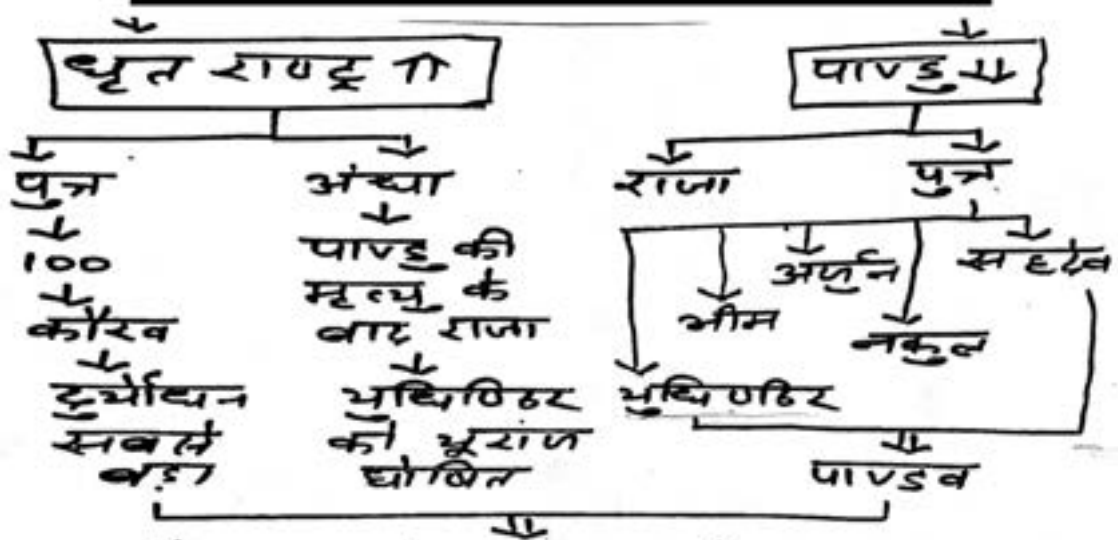 धृत राष्ट्र ↑↑
पाण्डु ↓↓
पुत्र
100
कौरव
दुर्योधन
सबसे
बड़ा
अंधा
पाण्डु की
मृत्यु के
बाद राजा
युधिष्ठिर
को यूराज
घोषित
राजा
पुत्र
युधिष्ठिर
भीम
अर्जुन
नकुल
सहदेव
पाण्डव